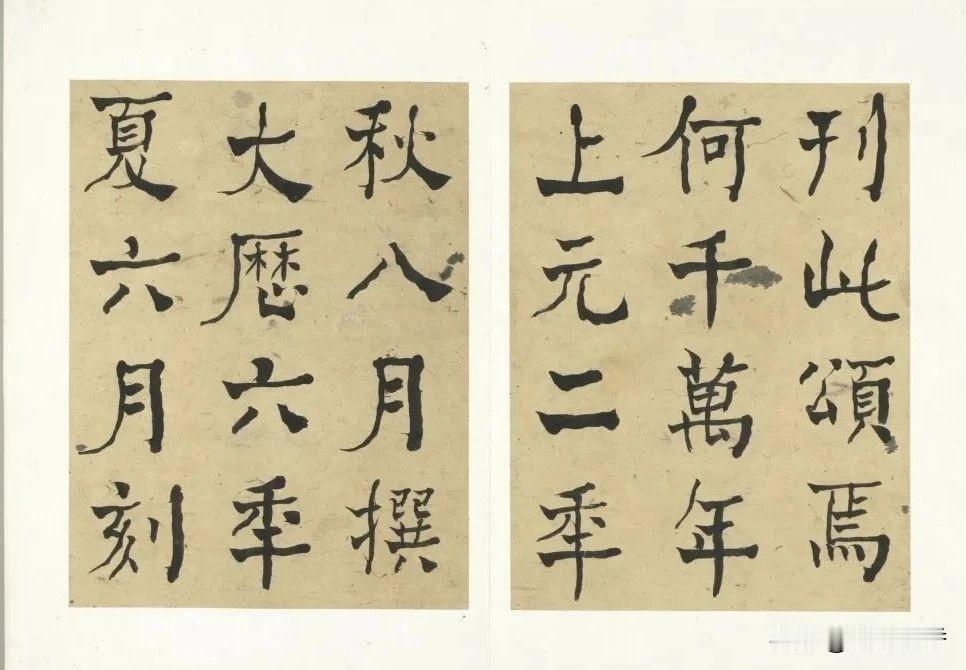 刊此頌焉
何千萬年
上元二秊
秋八月撰
大曆六秊
夏六月刻